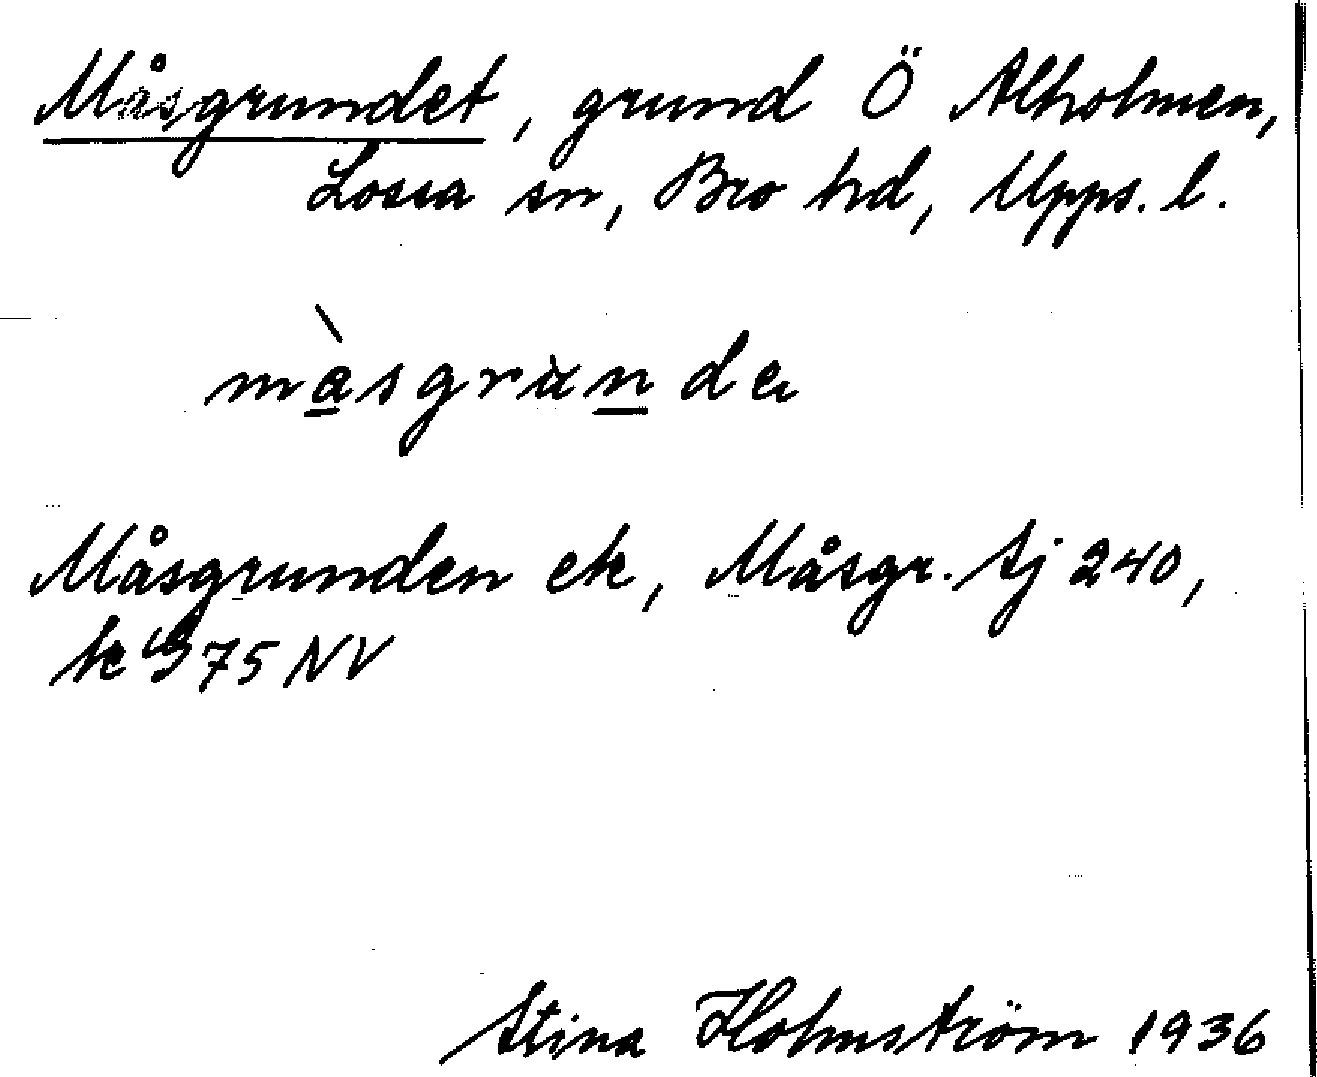 Måsgrundet, grund Ö Alholmen,
Lossa sn, Bro hd, Upps. l.
màsgrùnde
Måsgrunden ek, Måsgr. sj 240,
75 NV
Stina Holmström 1936